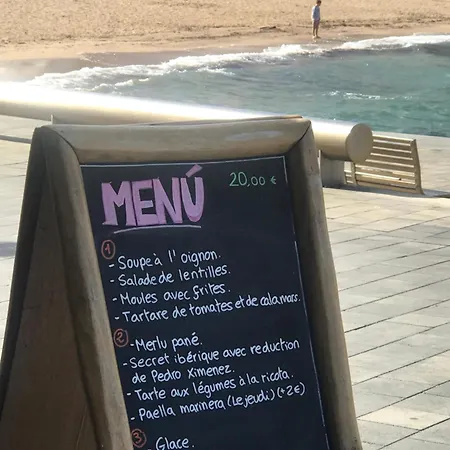 MENÚ 20,00 €
1
- Soupe à l'oignon.
- Salade de lentilles.
- Moules avec frites.
- Tartare de tomates et de calamars.
2
- Merlu pané.
- Secret ibérique avec reduction
de Pedro Ximenez.
- Tarte aux légumes à la ricota.
- Paella marinera (Le jeudi) (+2€)
3
- Glace.